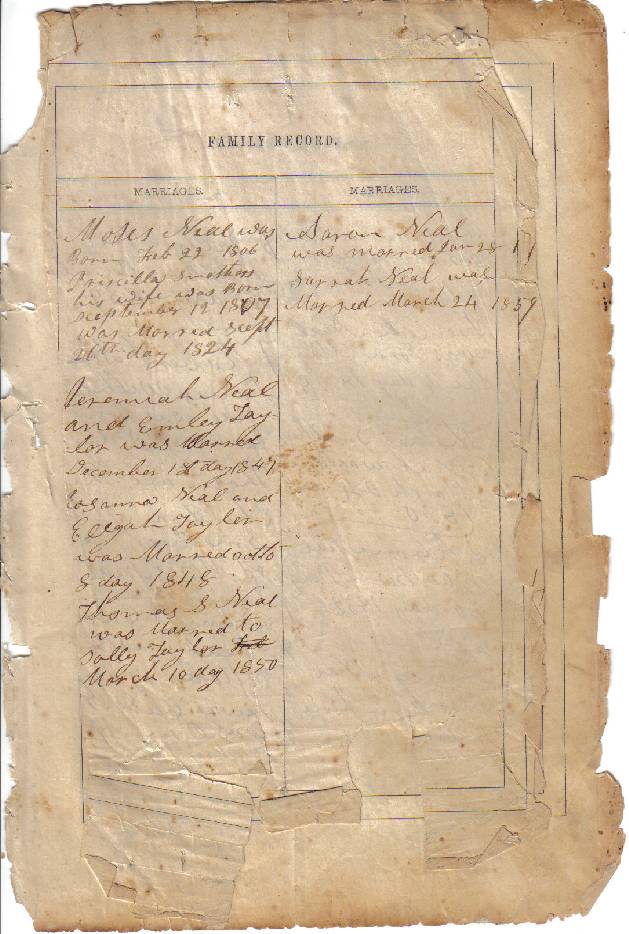 FAMILY RECORD.
MARRIAGES.
Moses Neal was
Born Feb 22 1806
Priscilla Smothers
his wife was Born
September 12 1807
was Marred Sept
26th day 1824
Jeremiah Neal
and Emley Tay-
lor was Marred
December 18 day 1847
Rosanna Neal and
Elegah Taylor
was Marred octo
8 day 1848
Thomas S Neal
was Marred to
Sally Taylor
March 10 day 1850
MARRIAGES.
Aaron Neal
was marred Jan 28
Sarrah Neal was
Marred March 24 1859